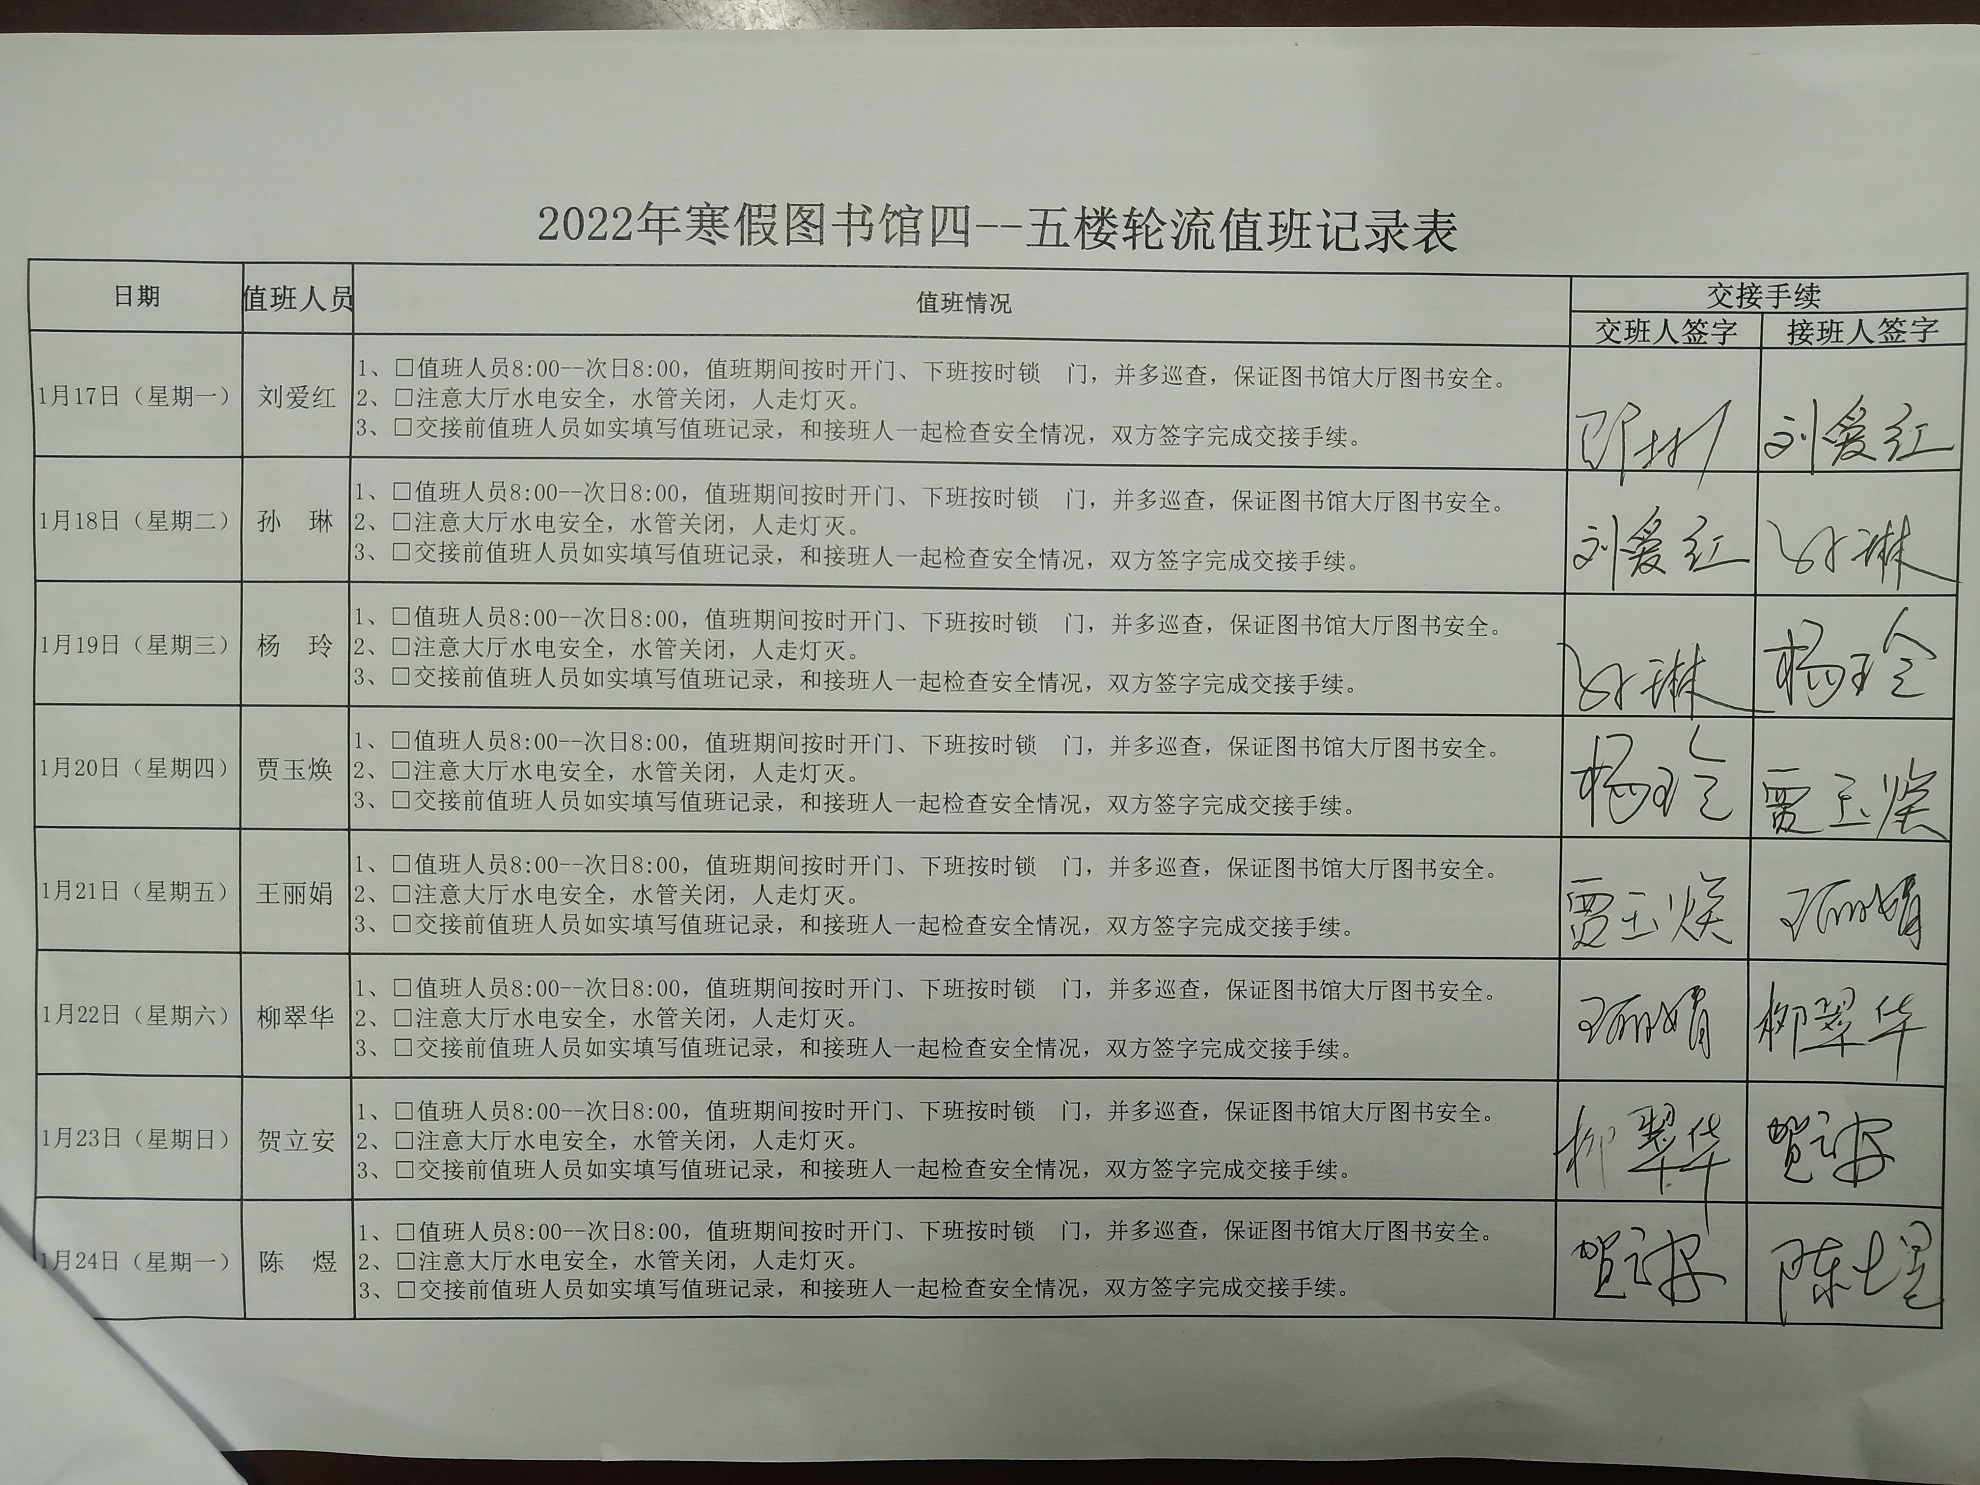 2022年寒假图书馆四--五楼轮流值班记录表
日期 值班人员 值班情况 交接手续
交班人签字 接班人签字
1月17日（星期一） 刘爱红
1、□值班人员8:00--次日8:00，值班期间按时开门、下班按时锁 门，并多巡查，保证图书馆大厅图书安全。
2、□注意大厅水电安全，水管关闭，人走灯灭。
3、□交接前值班人员如实填写值班记录，和接班人一起检查安全情况，双方签字完成交接手续。
刘爱红
1月18日（星期二） 孙 琳
1、□值班人员8:00--次日8:00，值班期间按时开门、下班按时锁 门，并多巡查，保证图书馆大厅图书安全。
2、□注意大厅水电安全，水管关闭，人走灯灭。
3、□交接前值班人员如实填写值班记录，和接班人一起检查安全情况，双方签字完成交接手续。
刘爱红 孙琳
1月19日（星期三） 杨 玲
1、□值班人员8:00--次日8:00，值班期间按时开门、下班按时锁 门，并多巡查，保证图书馆大厅图书安全。
2、□注意大厅水电安全，水管关闭，人走灯灭。
3、□交接前值班人员如实填写值班记录，和接班人一起检查安全情况，双方签字完成交接手续。
孙琳 杨玲
1月20日（星期四） 贾玉焕
1、□值班人员8:00--次日8:00，值班期间按时开门、下班按时锁 门，并多巡查，保证图书馆大厅图书安全。
2、□注意大厅水电安全，水管关闭，人走灯灭。
3、□交接前值班人员如实填写值班记录，和接班人一起检查安全情况，双方签字完成交接手续。
杨玲 贾玉焕
1月21日（星期五） 王丽娟
1、□值班人员8:00--次日8:00，值班期间按时开门、下班按时锁 门，并多巡查，保证图书馆大厅图书安全。
2、□注意大厅水电安全，水管关闭，人走灯灭。
3、□交接前值班人员如实填写值班记录，和接班人一起检查安全情况，双方签字完成交接手续。
贾玉焕 王丽娟
1月22日（星期六） 柳翠华
1、□值班人员8:00--次日8:00，值班期间按时开门、下班按时锁 门，并多巡查，保证图书馆大厅图书安全。
2、□注意大厅水电安全，水管关闭，人走灯灭。
3、□交接前值班人员如实填写值班记录，和接班人一起检查安全情况，双方签字完成交接手续。
王丽娟 柳翠华
1月23日（星期日） 贺立安
1、□值班人员8:00--次日8:00，值班期间按时开门、下班按时锁 门，并多巡查，保证图书馆大厅图书安全。
2、□注意大厅水电安全，水管关闭，人走灯灭。
3、□交接前值班人员如实填写值班记录，和接班人一起检查安全情况，双方签字完成交接手续。
柳翠华 贺立安
1月24日（星期一） 陈 煜
1、□值班人员8:00--次日8:00，值班期间按时开门、下班按时锁 门，并多巡查，保证图书馆大厅图书安全。
2、□注意大厅水电安全，水管关闭，人走灯灭。
3、□交接前值班人员如实填写值班记录，和接班人一起检查安全情况，双方签字完成交接手续。
贺立安 陈煜